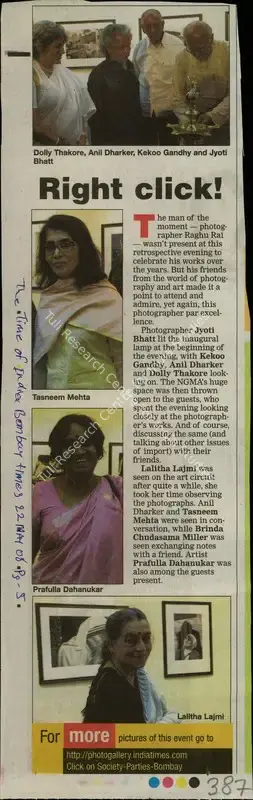 Dolly Thakore, Anil Dharker, Kekoo Gandhy and Jyoti
Bhatt
Right click!
The man of the
moment — photog-
rapher Raghu Rai
— wasn't present at this
retrospective evening to
celebrate his works over
the years. But his friends
from the world of photog-
raphy and art made it a
point to attend and
admire, yet again, this
photographer par excel-
lence.
Photographer Jyoti
Bhatt lit the inaugural
lamp at the beginning of
the evening, with Kekoo
Gandhy, Anil Dharker
and Dolly Thakore look-
ing on. The NGMA's huge
space was then thrown
open to the guests, who
spent the evening looking
closely at the photograph-
er's works. And of course,
discussing the same (and
talking about other issues
of import) with their
friends.
Lalitha Lajmi was
seen on the art circuit
after quite a while, she
took her time observing
the photographs. Anil
Dharker and Tasneem
Mehta were seen in con-
versation, while Brinda
Chudasama Miller was
seen exchanging notes
with a friend. Artist
Prafulla Dahanukar was
also among the guests
present.
Tasneem Mehta
Prafulla Dahanukar
Lalitha Lajmi
For more pictures of this event go to
http://photogallery.indiatimes.com
Click on Society-Parties-Bombay
387
The Time of India Bombay times 22 MAY 08 Pg-5.
Tuli Research Centre